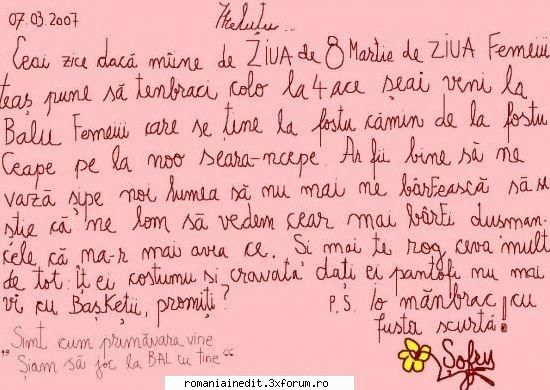 07.03.2007
Ceai zice dacă mîine de ZIUA de 8 Martie de ZIUA Femeiii
teaș pune să tenbraci colo la 4 ace șeai veni la
Balu Femeiii care se ține la fostu cămin de la fostu
Ceape pe la noo seara-ncepe. Ar fii bine să ne
varză șipe noi lumea să nu mai ne bârfească să se
știe că ne lom să vedem cear mai bârfi dușman-
cele că na-r mai avea ce. Si mai te rog ceva mult
de tot: Îț ei costumu si cravată dați ei pantofi nu mai
vi cu Bașketii, promiți? P.S. Io mănbrac cu
fusta scurtă!
"Simt cum primăvara vine
Șiam să joc la BAL cu tine"
Sofru
romaniainedit.3xforum.ro